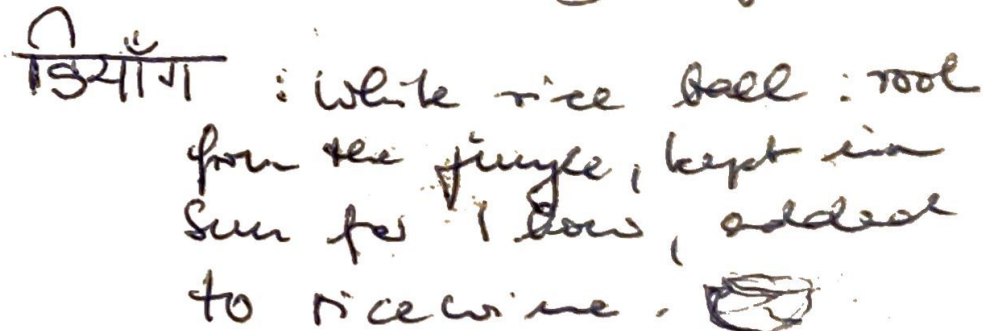 डियाँग : white rice ball : root
from the jungle, kept in
sun for 1 hour, added
to rice wine.